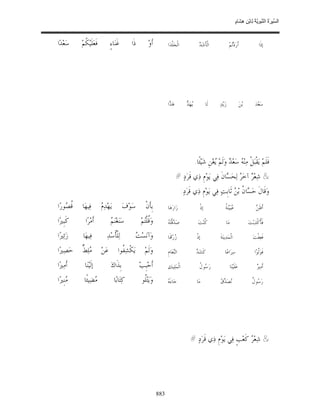 السّيرَة النّبَويّة لابْن هشَام
إذَا أَرَدْتُمْ الْأَشَدّ الْجَلْدَا أَوْ ذَا غَنَاءٍ فَعَلَيْكُمْ سَعْدَا
سَعْدَ بْنَ زَيْدٍ لَا يُهَدّ هَدّا
فَلَمْ يَقْبَلْ مِنْهُ سَعْدٌ وَلَمْ يُغْنِ شَيْئًا.
& شِعْرٌ آخَرُ لِحَسّانَ فِي يَوْمِ ذِي قَرَدٍ #
وَقَالَ حَسّانُ بْنُ ثَابِتٍ فِي يَوْمِ ذِي قَرَدٍ
أَظَنّ عُيَيْنَةُ إذْ زَارَهَا بِأَنْ سَوْفَ يَهْدِمُ فِيهَا قُصُورًا
فَأُكْذِبْتَ مَا كُنْتَ صَدّقْتَهُ وَقُلْتُمْ سَنَغْنَمُ أَمْرًا كَبِيرًا
فَعِفْتَ الْمَدِينَةَ إذْ زُرْتَهَا وَآنَسْتُ لِلْأُسْدِ فِيهَا زَئِيرًا
فَوَلّوْا سِرَاعًا كَشَدّ النّعَامِ وَلَمْ يَكْشِفُوا عَنْ مُلِطّ حَصِيرًا
أَمِيرٌ عَلَيْنَا رَسُولُ الْمَلِيكِ أَحْبِبْ بِذَاكَ إلَيْنَا أَمِيرًا
رَسُولٌ نُصَدّقُ مَا جَاءَهُ وَيَتْلُو كِتَابًا مُضِيئًا مُنِيرًا
& شِعْرُ كَعْبٍ فِي يَوْمِ ذِي قَرَدٍ #
883